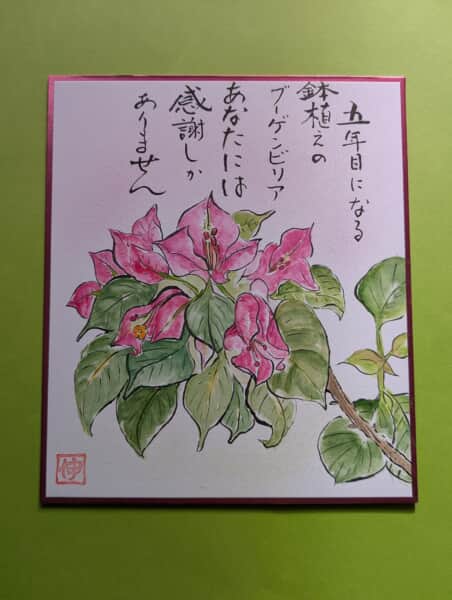 五年目になる
鉢植えの
ブーゲンビリア
あなたには
感謝しか
ありません
伸